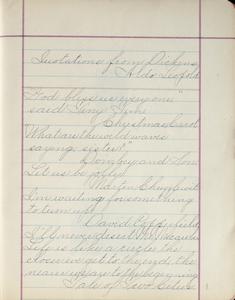 Quotations from Dickens
Aldo Leopold
"God bless us every one"
said Tiny Tim.
Christmas Carol
"What are the wild waves
saying, sister"
Dombey and Son
Let us be jolly
Martin Chuzzlewit
I'm waiting for something
to turn up
David Copperfield
I'll never desert Mr. Micawber
Life is like a circle the
closer we get to the end, the
nearer we are to the beginning
Tale of Two Cities